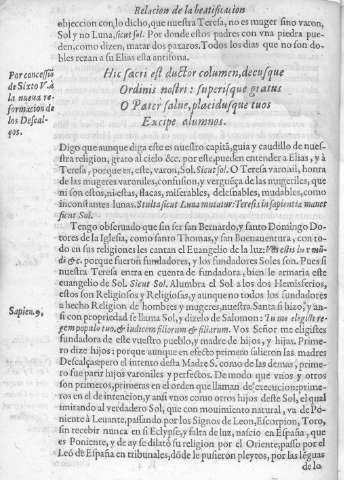 Relacion de la beatificacion
objeccion con lo dicho, que nuestra Teresa, no es muger sino varon,
Sol y no Luna, sicut sol. Por donde estos padres con vna piedra pue-
den, como dizen, matar dos paxaros. Todos los dias que no son do-
bles rezan a su Elias esta antifona.
Por concessiō
de Sixto V. à
la nueua re-
formacion de
los Descal-
ços.
Hic sacri est ductor columen, decusque
Ordinis nostri: superisque gratus
O Pater salue, placidusque tuos
Excipe alumnos.
Digo que aunque diga este es nuestro capitā, guia y caudillo de nues-
tra religion, grato al cielo &c. por este, pueden entender a Elias, y à
Teresa, porque es, este, varon, Sol. Sicut sol. O Teresa varonil, honra
de las mugeres varoniles, confusion, y verguēça de las mugeriles, que
ni son estos, ni estas, flacas, miserables, deleznables, mudables, como
inconstantes lunas. Stultus sicut Luna mutatur: Teresa in sapientia manet
sicut Sol.
Tengo obseruado que sin ser san Bernardo, y santo Domingo Do-
tores de la Iglesia, como santo Thomas, y san Buenauentura, con to-
do en sus religiones les cantan el Euangelio de la luz: Vos estis lux mū-
di &c. porque fueron fundadores, y los fundadores Soles son. Pues si
nuestra Teresa entra en cuenta de fundadora, bien le armaria este
euangelio de Sol. Sicut Sol. Alumbra el Sol a los dos Hemisferios,
estos son Religiosos y Religiosas, y aunque no todos los fundadores
a hecho Religion de hombres y mugeres, nuestra Santa si hizo, y an-
Sapien. 9.
si con propriedad se llama Sol, y dizelo de Salomon: Tu me elegiste re-
gem populo tuo, & iudicem filiorum & filiarum. Vos Señor me eligistes
fundadora de este vuestro pueblo, y madre de hijos, y hijas. Prime-
ro dize hijos: porque aunque en efecto primero salieron las madres
Descalças, pero el intento desta Madre S. como de las demas, prime-
ro fue parir hijos varoniles y perfectos. De modo que vnos y otros
son primeros, primeras en el orden que llaman de execucion: prime-
ros en el de intencion, y ansi vnos como otros hijos deste Sol, el qual
imitando al verdadero Sol, que con mouimiento natural, va de Po-
niente à Leuante, passando por los Signos de Leon, Escorpion, Toro,
sin recebir nunca en si Eclypse, y falta de luz, nascio en España, que
es Poniente, y de ay se dilatò su religion por el Oriente, passo por el
Leō de España en tribunales, dōde le pusieron pleytos, por las lēguas
de lo